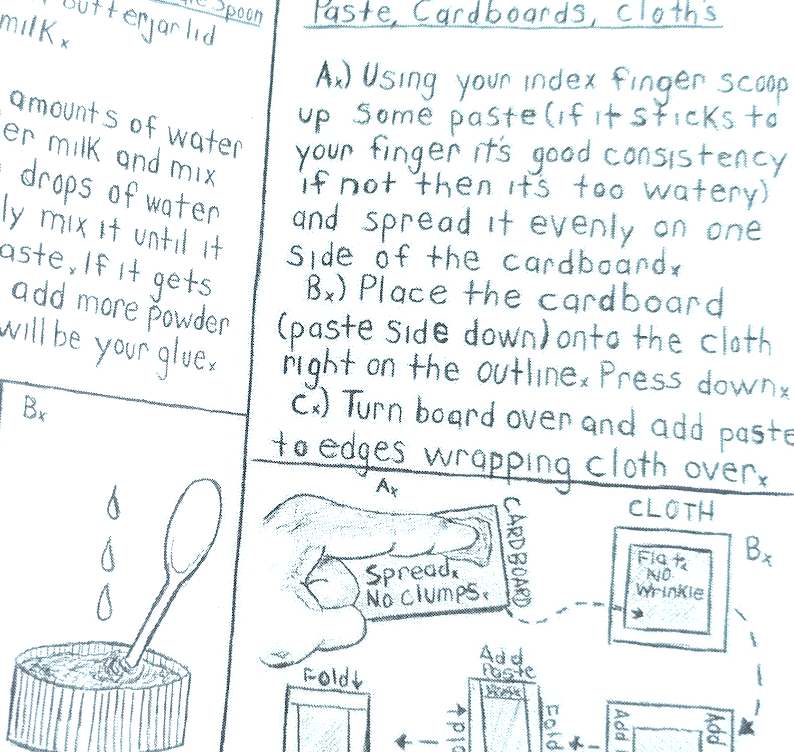 Spoon
butterjar lid
milkx
amounts of water
er milk and mix
drops of water
ly mix it until it
aste. If it gets
add more powder
will be your glue.x
Bx
Paste, Cardboards, Cloth's
Ax) Using your index finger scoop
up some paste (if it sticks to
your finger it's good consistency
if not then it's too watery)
and spread it evenly on one
side of the cardboardx
Bx) Place the cardboard
(paste side down) onto the cloth
right on the outlinex Press downx
Cx) Turn board over and add paste
to edges wrapping cloth overx
Ax
CARDBOARD
Spreadx
No Clumps.
CLOTH
Bx
Flatx
No
Wrinkle
Fold↓
Add
Paste
Fold
Fold
Add
Add